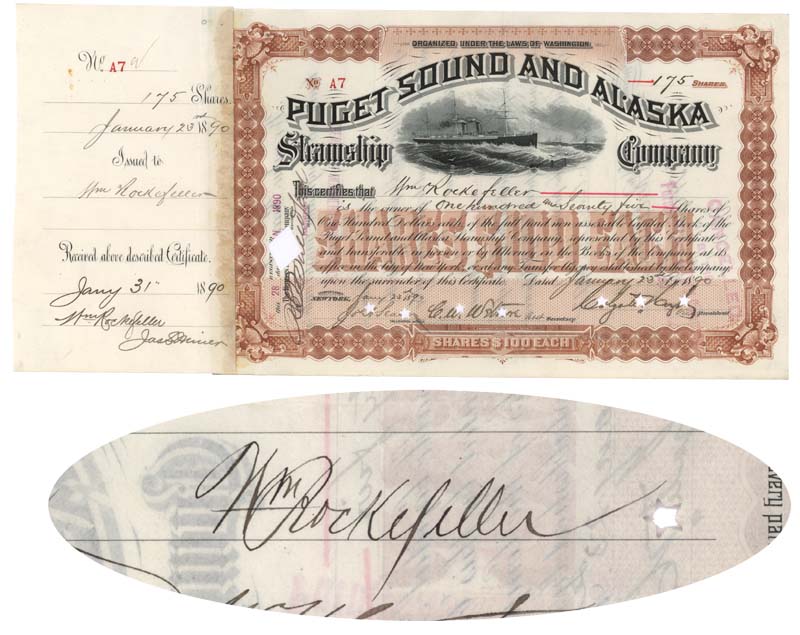 No A7
175 Shares.
January 23rd 1890
Issued to
Wm Rockefeller
Received above described Certificate.
Jany 31" 1890
Wm Rockefeller
ORGANIZED UNDER THE LAWS OF WASHINGTON.
No A7
175 SHARES.
PUGET SOUND AND ALASKA
Steamship Company
This certifies that Wm Rockefeller
is the owner of One hundred and Seventy five Shares of
One Hundred Dollars each of the full paid non assessable Capital Stock of the
Puget Sound and Alaska Steamship Company, represented by this Certificate
and transferable in person or by Attorney on the Books of the Company at its
office in the City of New York, or at any Transfer Agency established by the Company
upon the surrender of this Certificate. Dated January 23rd 1890
NEW YORK, Jany 23 1890
Secretary
President
SHARES $100 EACH
Wm Rockefeller